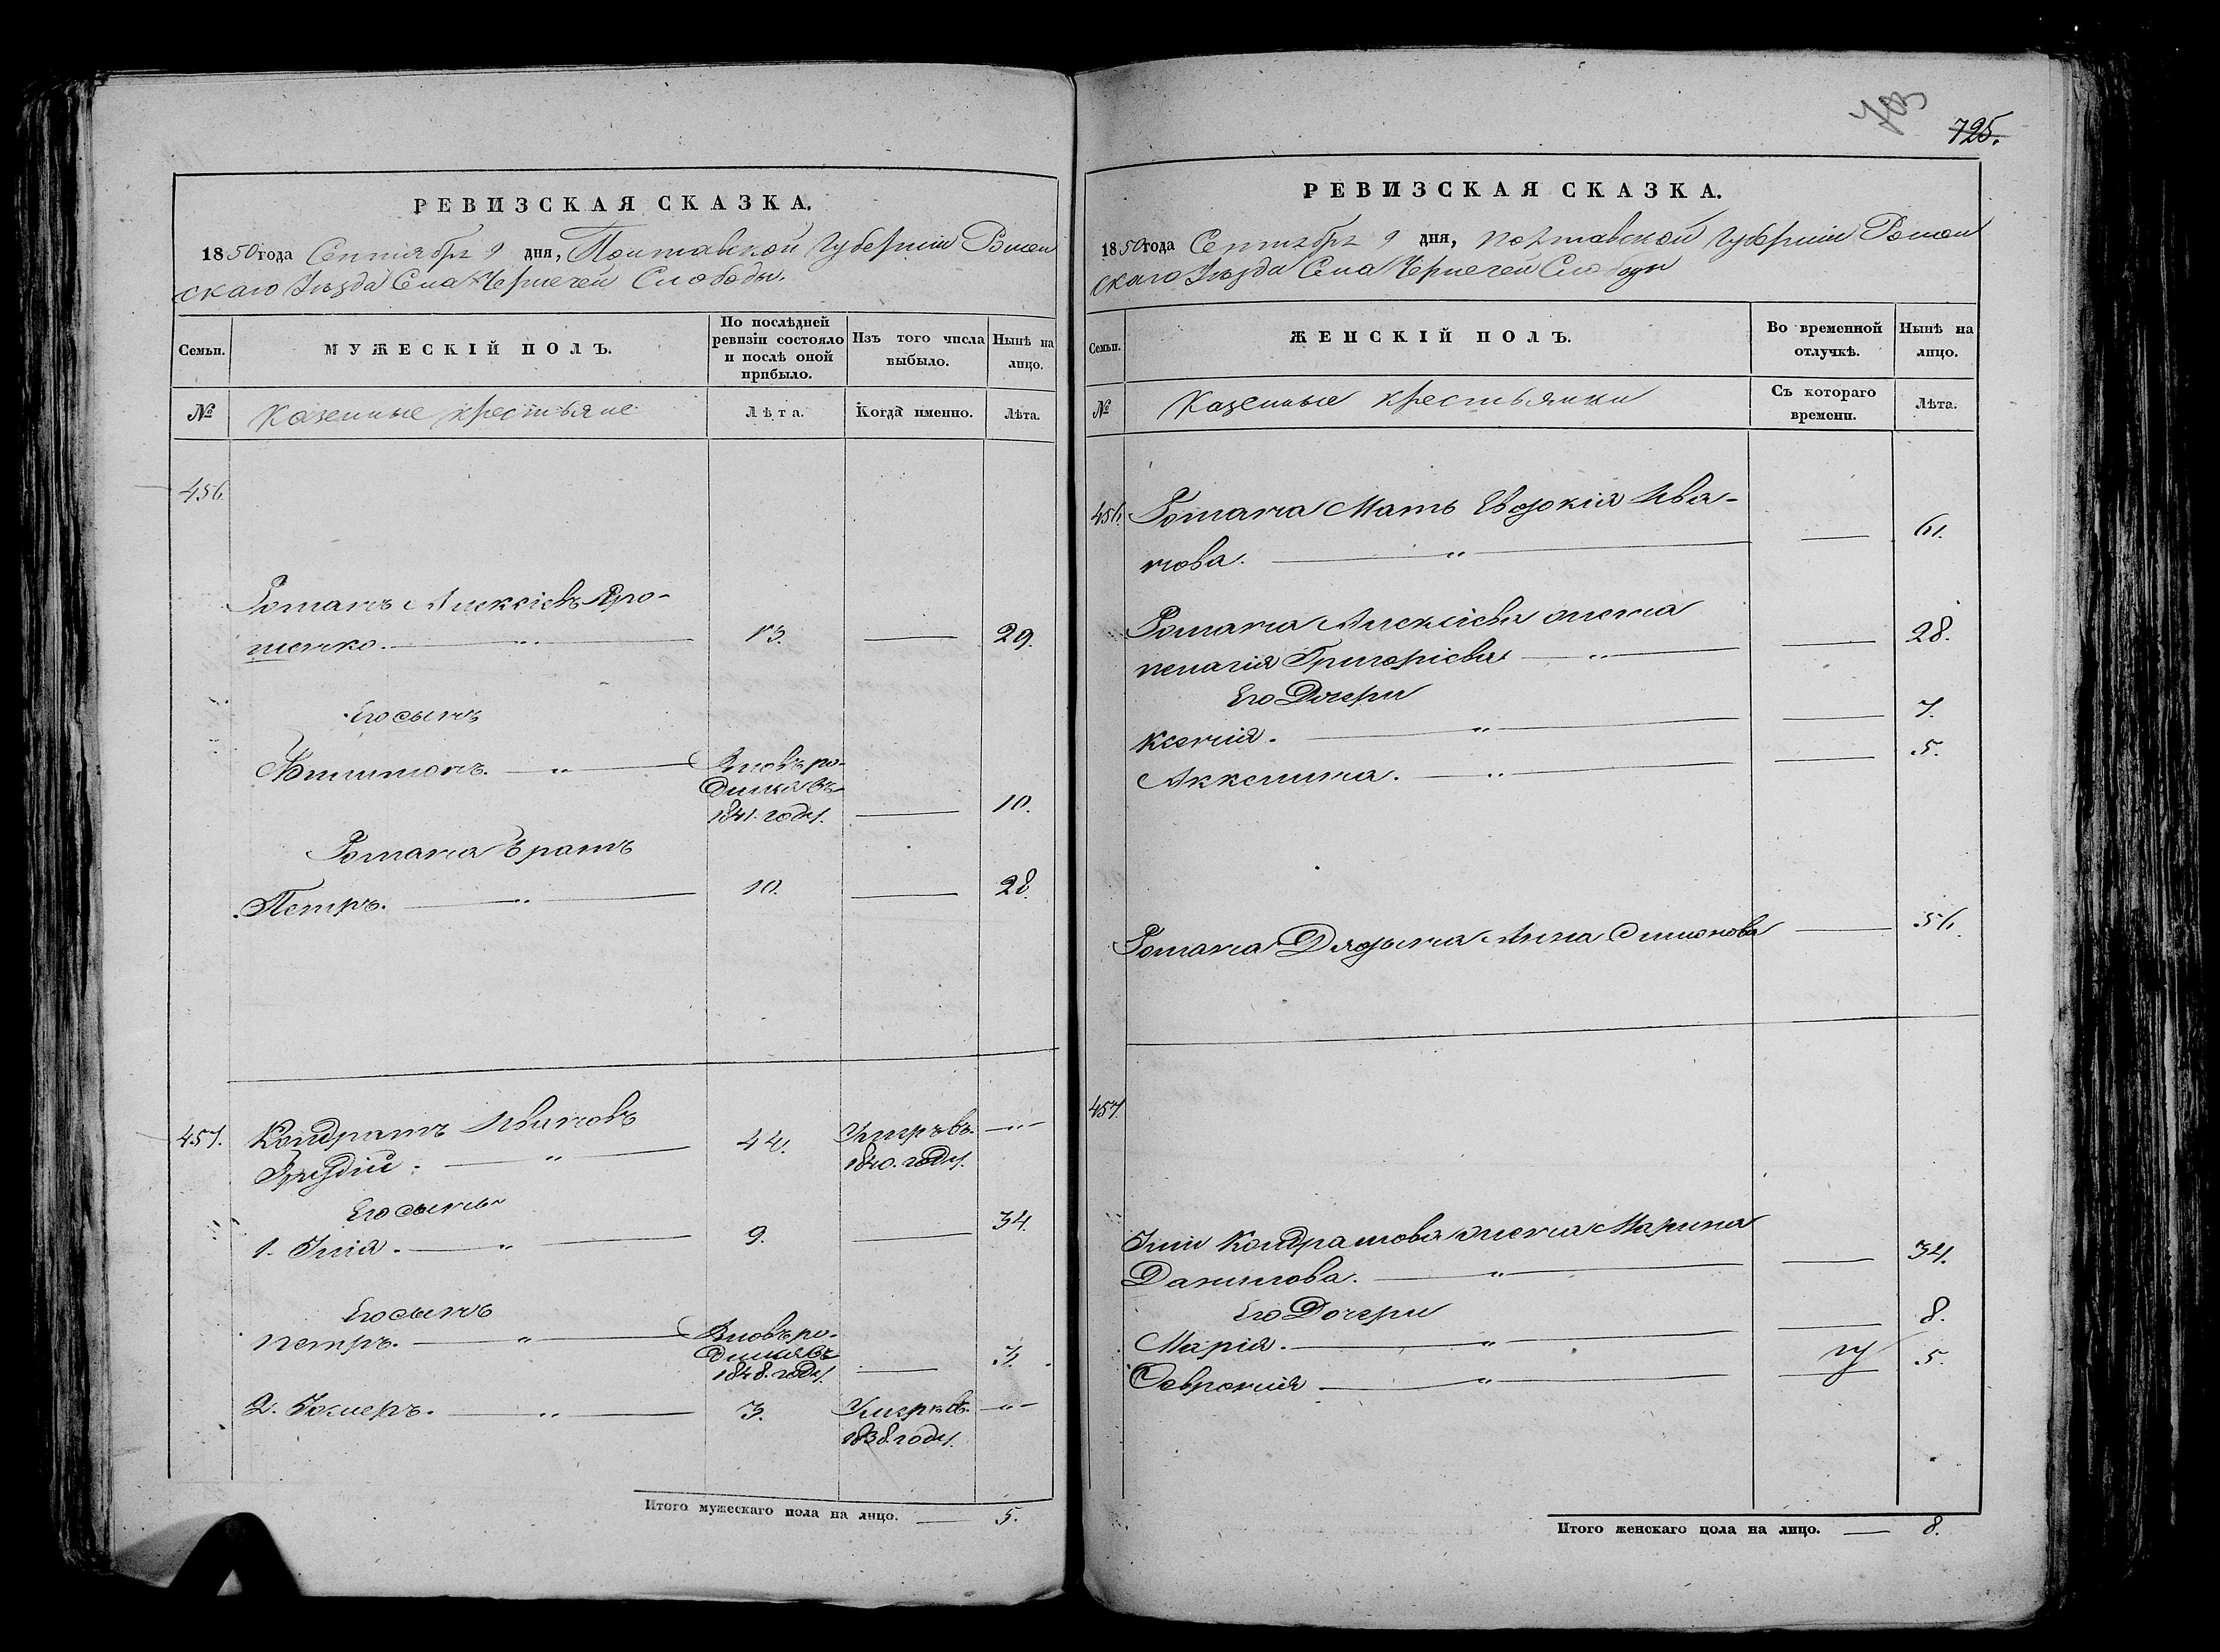 РЕВИЗСКАЯ СКАЗКА.
1850 года Сентября 9 дня, Полтавской Губернии Ромен
скаго Уезда Села Чернечей Слободы.
Семьи.
МУЖЕСКІЙ ПОЛЪ.
По послѣдней
ревизіи состояло
и послѣ оной
прибыло.
Изъ того числа
выбыло.
Нынѣ на
лицо.
№
Казенные крестьяне
Лѣта.
Когда именно.
Лѣта.
456.
Романъ Алексіевъ Яро-
шенко. — " — 13. — 29.
Его сынъ
— " — Вновь ро-
дился въ
1841. году. — 10.
Романа братъ
Петръ. — " — 10. — 28.
457. Кондратъ Ивановъ
— " — 44. Умръ въ — " —
1840. году.
Его сынъ
1. Илія. — " — 9. — 34.
Его сынъ
Петръ. — " — Вновь ро-
дился въ
1848. году. — 3.
2. — " — 3. Умръ въ — " —
1838 году.
Итого мужескаго пола на лицо. — 5.
703
725.
РЕВИЗСКАЯ СКАЗКА.
1850 года Сентября 9 дня, Полтавской Губернии Ромен
скаго Уезда Села Чернечей Слободы
Семьи.
ЖЕНСКІЙ ПОЛЪ.
Во временной
отлучкѣ.
Нынѣ на
лицо.
№
Казенные крестьянки
Съ котораго
времени.
Лѣта.
456. Романа Мать Евдокія Ива-
нова. — " — — 61.
Романа Алексіева жена
Пелагія Григоріева — " — — 28.
Его Дочери
Ксенія. — " — — 7.
Аккелина. — " — — 5.
Романа Дядина Анна Симонова — 56.
457.
Иліи Кондратова жена Марина
Данилова. — " — — 34.
Его Дочери
Марія. — " — — 8.
Февронія — " — — 5.
Итого женскаго пола на лицо. — 8.